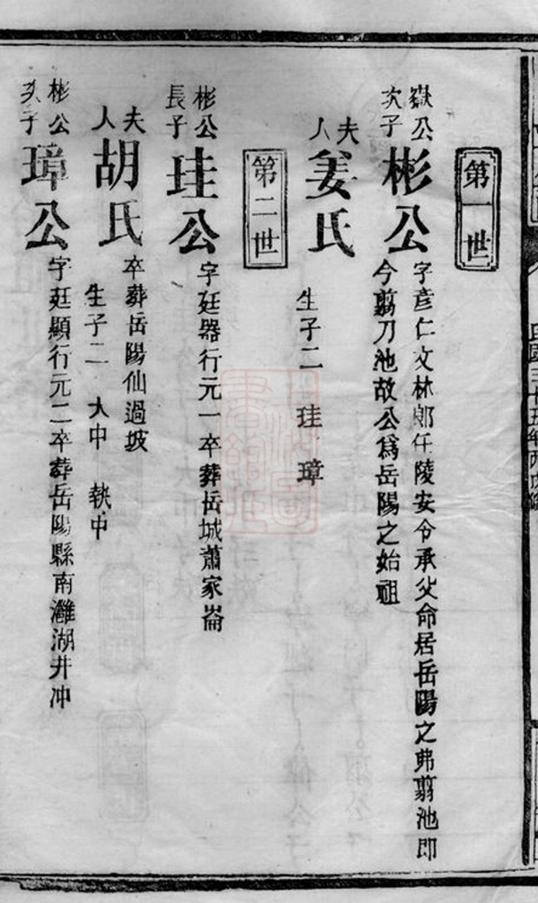 第一世
嶽公次子
彬公
字彥仁文林郎任陵安令承父命居岳陽之弗翦池即
今翦刀池故公爲岳陽之始祖
夫人
姜氏
生子二 珪 璋
第二世
彬公長子
珪公
字廷器行元一卒葬岳城蕭家崙
夫人
胡氏
卒葬岳陽仙過坡
生子二 大中 執中
彬公次子
璋公
字廷顯行元二卒葬岳陽縣南灉湖井冲
民國三十五年丙戌